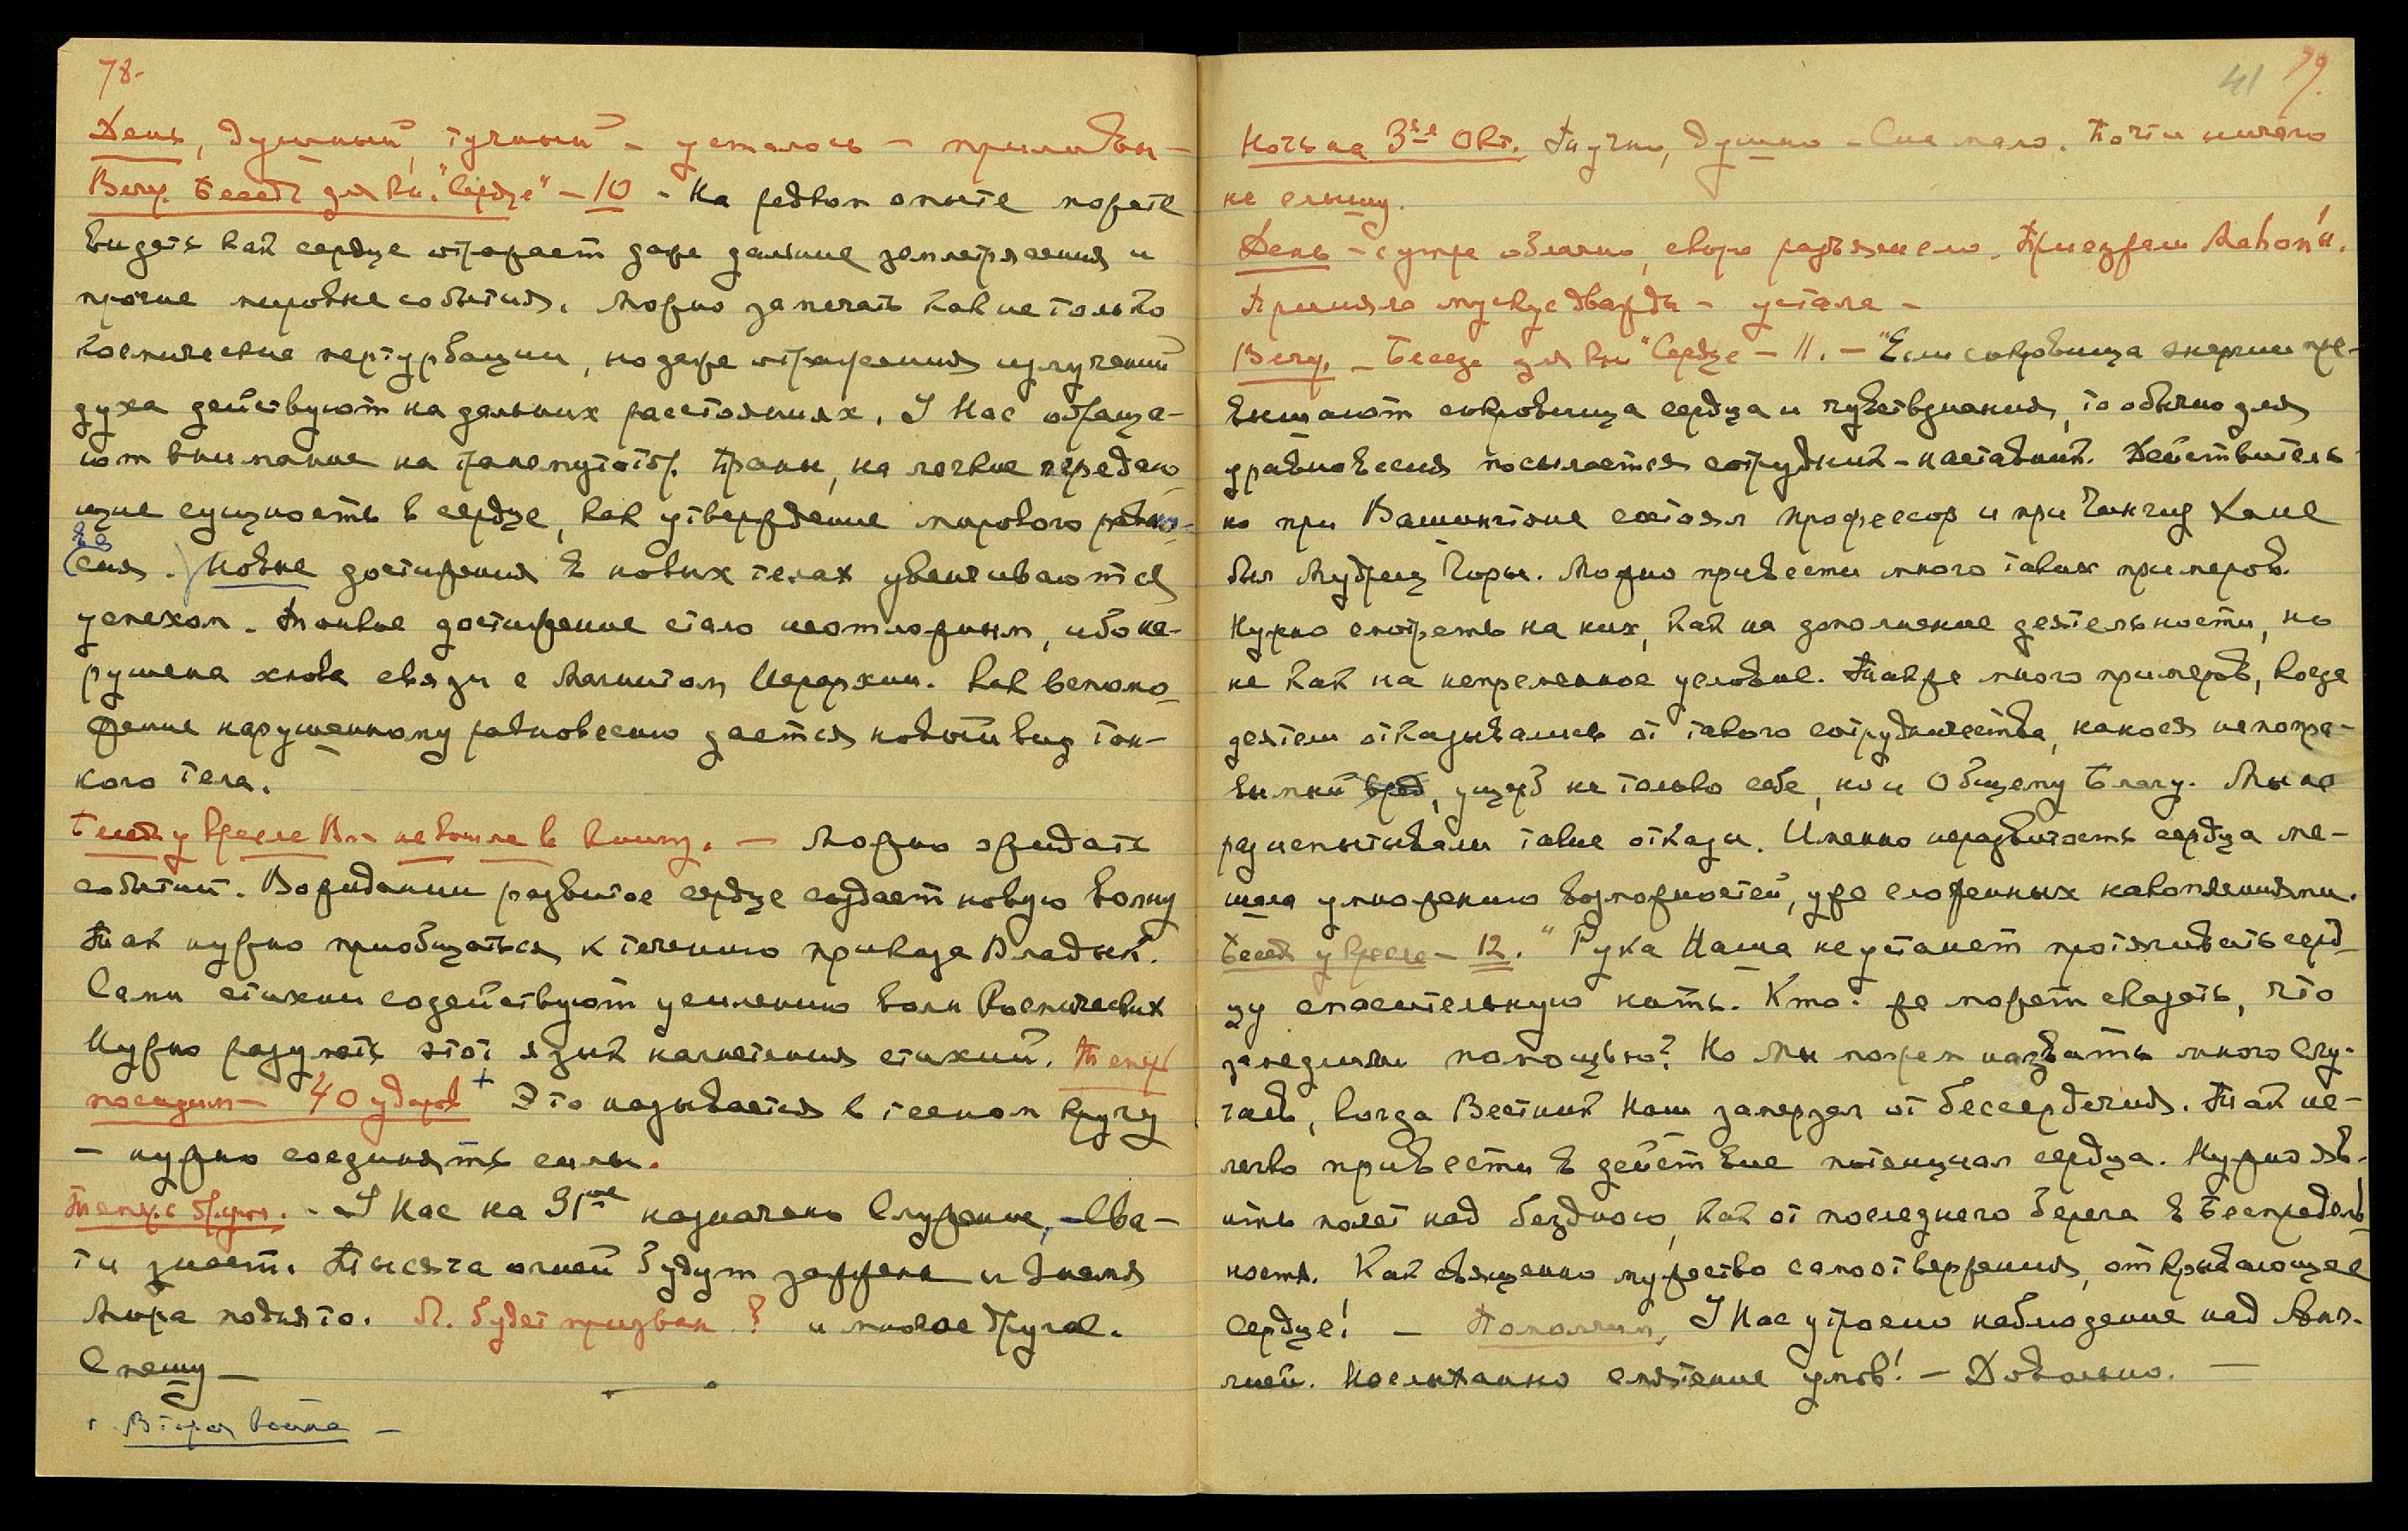 78-
День, душный, тучный – усталость – приливы –
Вечер. Беседа для кн. "Сердце" – 10 – На редком опыте можете
видеть как сердце отражает даже дальние землетрясения и
прочие мировые события. Можно замечать как не только
космические пертурбации, но даже отражения излучений
духа действуют на дальних расстояниях. У Нас обраща-
ют внимание на Праны, на легкие передаю-
щие сущность в сердце, как утверждение мирового равно-
ве
(сия.) Новые достижения в новых телах увенчиваются
успехом. Тонкое достижение стало неотложным, ибо на-
рушена основа связи с Магнитом Иерархии. Как вспомо-
жение нарушенному равновесию дается новый вид тон-
кого тела.
Беседа у кресла Вл. не вошла в книгу. – Можно ожидать
событий. В ожидании развитое сердце создает новую волну
Так нужно приобщаться к течению приказа Владык.
Сами стихии содействуют усилению волн Космических
Нужно разуметь этот язык нагнетения стихий. Теперь
посидим – 40 ударов + Это называется в тесном кругу
– нужно соединять силы.
У Нас на 31ое назначено Служение, – Сва-
ти знает. Тысяча огней будут зажжена и Знамя
Мира поднято. П. будет призван ? и многое другое.
Спешу –
Вторая война –
41 79.
Ночь на 3ье Окт. Тучно, душно – Сна мало. Почти ничего
не слышу.
День – с утра облачно, скоро разъяснело. Приезжал Mahon'и.
Приняла мускус дважды – устала –
Вечер. – Беседа для кн "Сердце – 11. – "Если сокровища энергии пре-
вышают сокровища сердца и чувствзнания, то обычно для
уравновесия посылается сотрудник-наставник. Действитель-
но при Вашингтоне состоял профессор и при Чингиз Хане
был Мудрец Горы. Можно привести много таких примеров.
Нужно смотреть на них, как на дополнение деятельности, но
не как на непременное условие. Также много примеров, когда
деятели отказывались от такого сотрудничества, нанося непопра-
вимый вред, ущерб не только себе, но и Общему Благу. Мы не
раз испытывали такие отказы. Именно неразвитость сердца ме-
шала умножению возможностей, уже сложенных накоплениями.
Беседа у кресла – 12. "Рука Наша не устанет протягивать серд-
цу спасительную нить. Кто же может сказать, что
замедлили помощью? Но мы можем назвать много слу-
чаев, когда Вестник Наш замерзал от бессердечия. Так не-
легко привести в действие потенциал сердца. Нужно яв-
ить полет над бездною, как от последнего берега в Беспредель-
ность. Как священно мужество самоотвержения, открывающее
Сердце! – Помолчим. У Нас утроено наблюдение над Анг-
лией. Неслыханно смятение умов! – Довольно. –